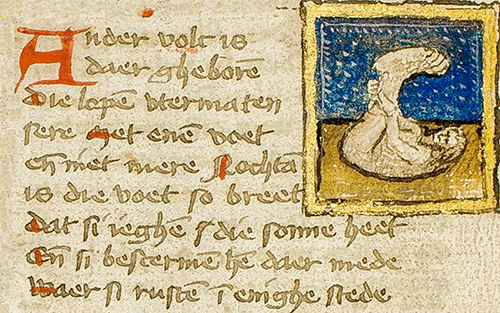 Ander volc is
daer gheborē
die lopē vtermaten
sere Met enē voet
eñ niet mere Nochtā
is die voet so breet
dat si ieghē die sonne heet
Eñ si beschermē hē daer mede
Waer si rustē ī enighe stede